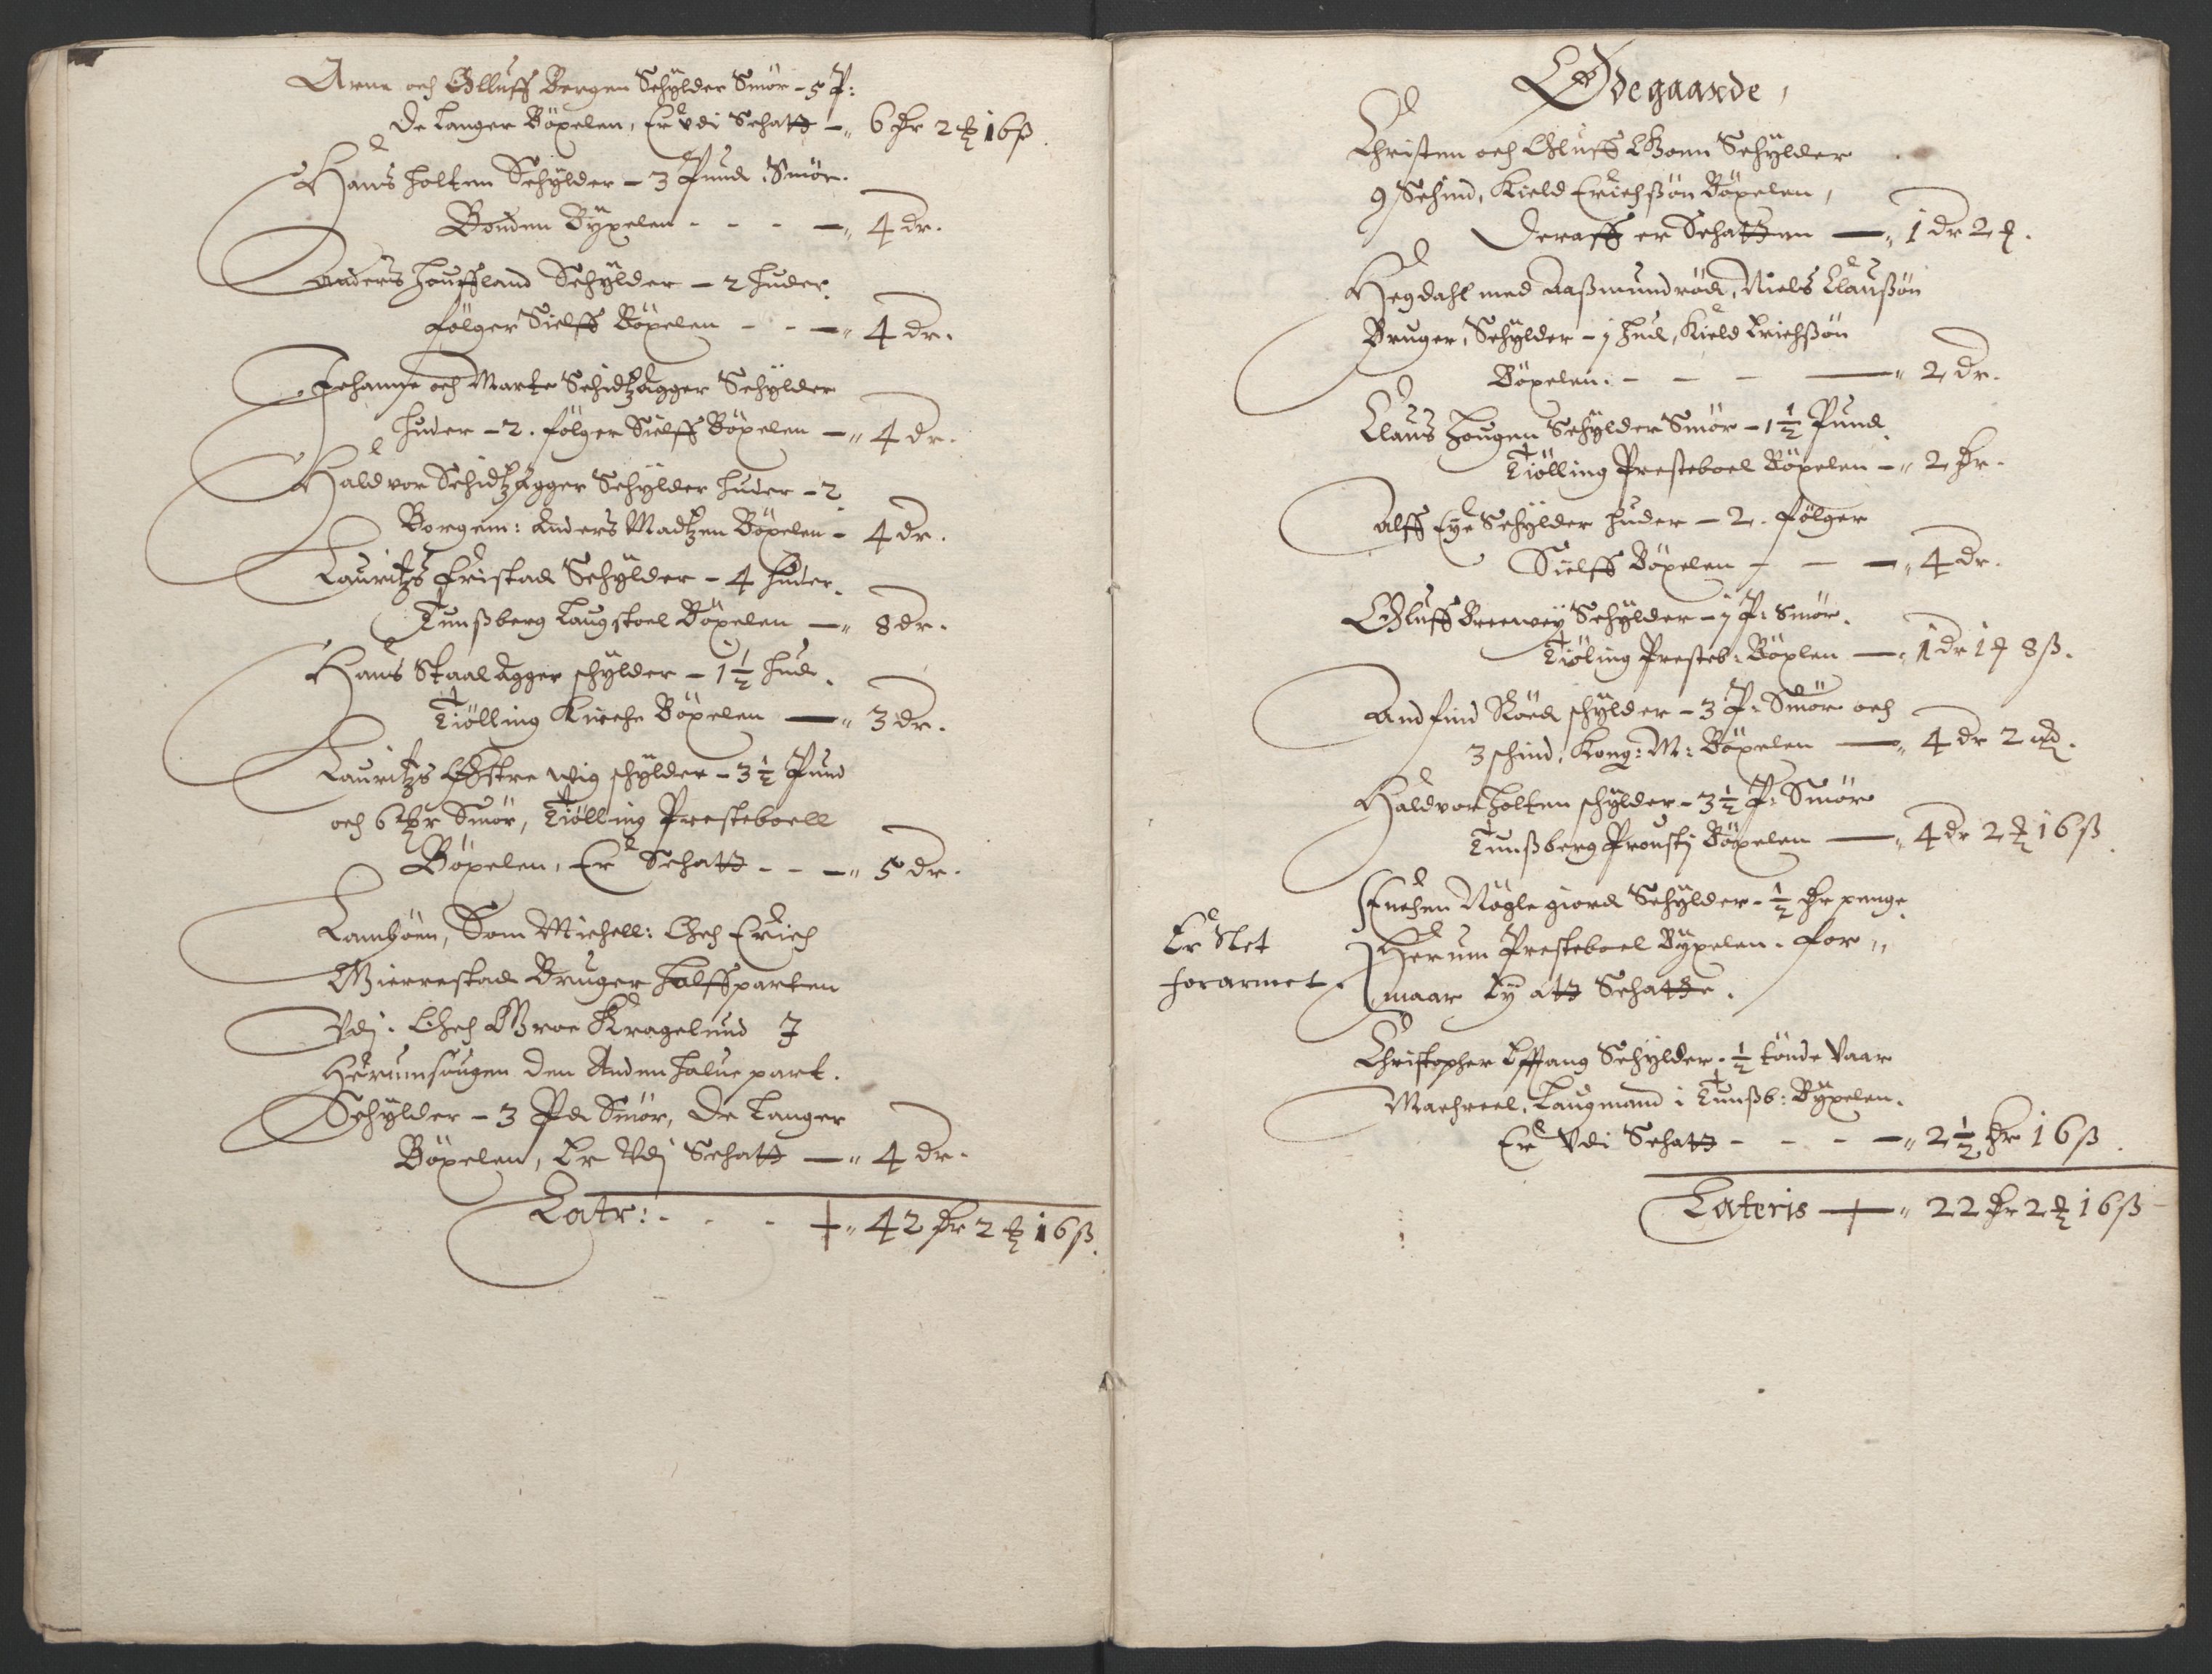 Arne och Olluff Bergen Schylder Smör - 5 P:
De Langer Böxelen, Er vdi Schatt - 6 dr 2 16 ß.
Hans Holten Schylder - 3 Pund Smör.
Bonden Byxelen - - - 4 dr.
Anders Houffland Schylder - 2 Huder
følger Sielff Böxelen - - 4 dr.
Johannes och Marte Schidtzagger Schylder
Huder - 2. følger Sielff Böxelen - 4 dr.
Haldvor Schidtzagger Schylder Huder - 2
Borgem: Anders Madtzen Böxelen - 4 dr.
Lauritzs Fristad Schylder - 4 Huder.
Tunßberg Laugstoel Böxelen - 8 dr.
Hans Staalagger schylder - 1½ Hud.
Tiölling Kirche Böxelen - 3 dr.
Lauritzs Østre Wig schylder - 3½ Pund
och 6 Smör, Tiölling Presteboell
Böxelen, Er Schatt - - 5 dr.
Lamböen, Som Michell: Och Erich
Gierrestad Bruger Halffparten
Vdj. Och Groe Kragelund J
Herumsougen den Anden Halue part.
Schylder - 3 Pd Smör, De Langer
Böxelen, Er Vdj Schatt - 4 dr.
Latr: - - - 42 dr 2 16 ß.
Ødegaarde,
Christen och Oluff Schylder
9 Schind, Kield Erichßön Böxelen,
Deraff er Schatten - 1 dr 2
Hegdahl med Aaßmundröd, Niels Claußön
Bruger, Schylder - j Hud, Kield Erichßön
Böxelen: - - - 2 dr.
Claus Hougen Schylder Smör - 1½ Pund
Tiölling Presteboel Böxelen - 2 dr.
Alff Eye Schylder Huder - 2. følger
Sielff Böxelen - - - 4 dr.
Oluff Breewey Schylder - j P: Smör.
Tiöling Presteb: Böxlen - 1 dr 1 8 ß.
Andfind Röed schylder - 3 P: Smör och
3 schind, Kong: M: Böxelen - 4 dr 2
Haldvor Holten schylder - 3½ P: Smör
Tunßberg Proustj Böxelen - 4 dr 2 16 ß.
Enchen Nögle giord Schylder - ½ dr penge
Er Slet
forarmet.
Herum Presteboel Byxelen. for
maar Ey att Schatte.
Christopher Effang Schylder - ½ tönde
Machreel, Laugmand i Tunßb: Byxelen.
Er Vdi Schatt - - - 2½ dr 16 ß.
Lateris - 22 dr 2 16 ß